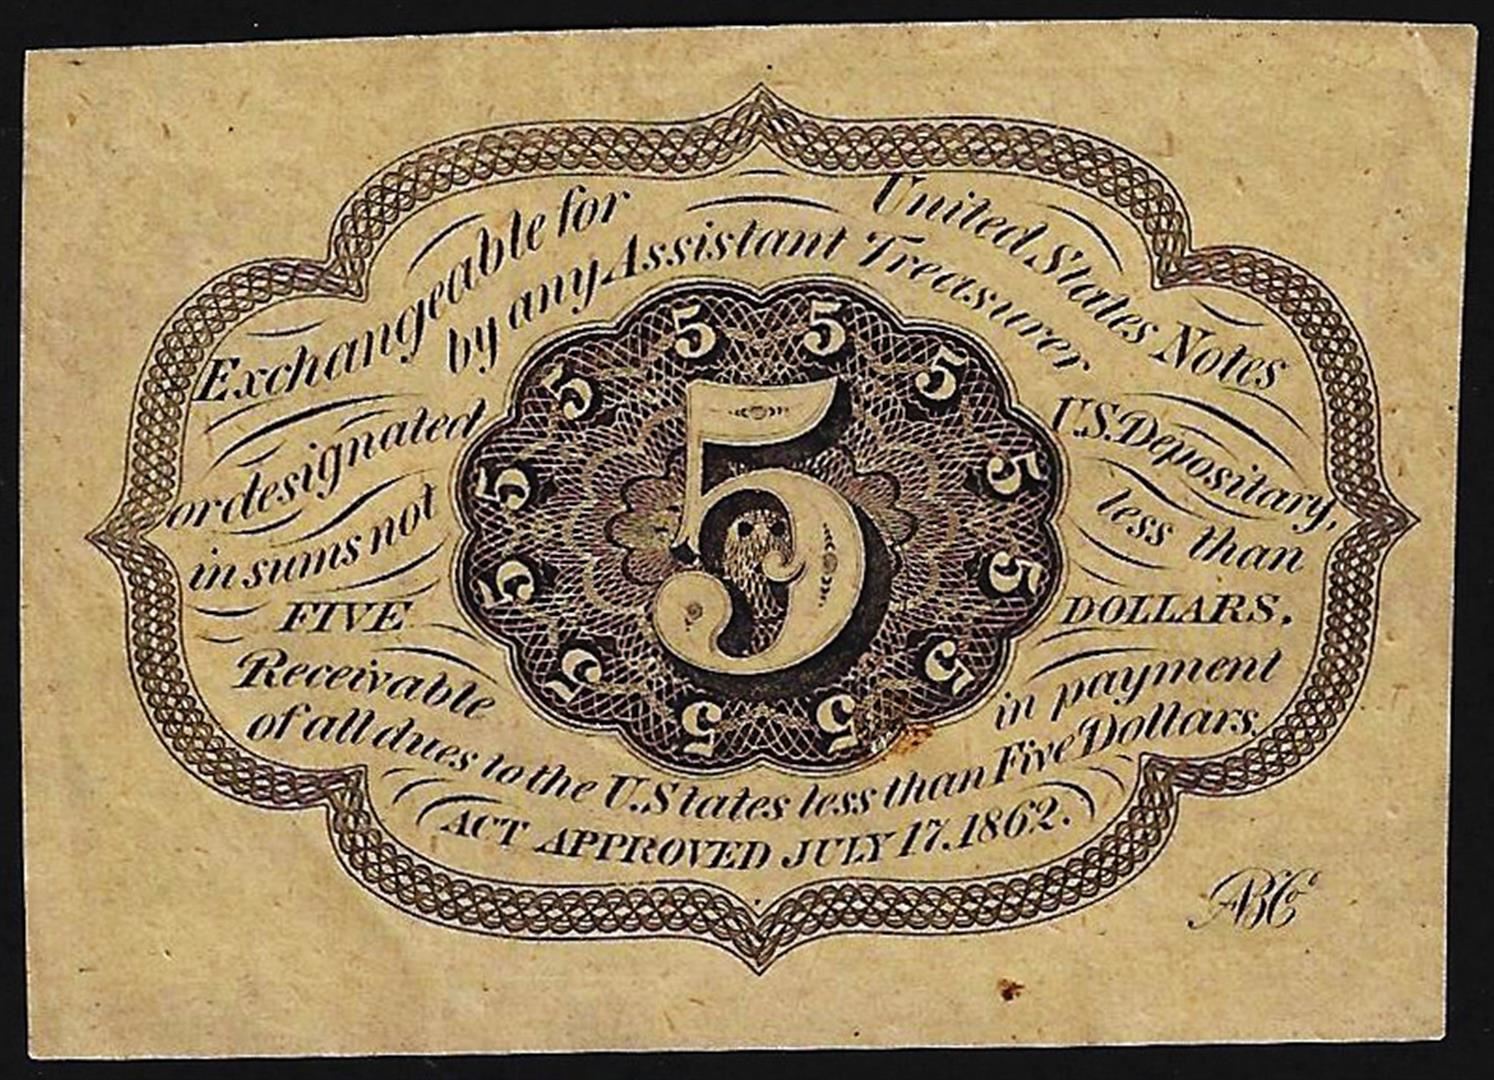 Exchangeable for United States Notes
by any Assistant Treasurer
or designated U.S. Depositary,
in sums not less than
FIVE DOLLARS.
Receivable in payment
of all dues to the U. States less than Five Dollars.
ACT APPROVED JULY 17, 1862.
5
5 5
5 5
5 5
5 5
5 5
5 5
ABCo